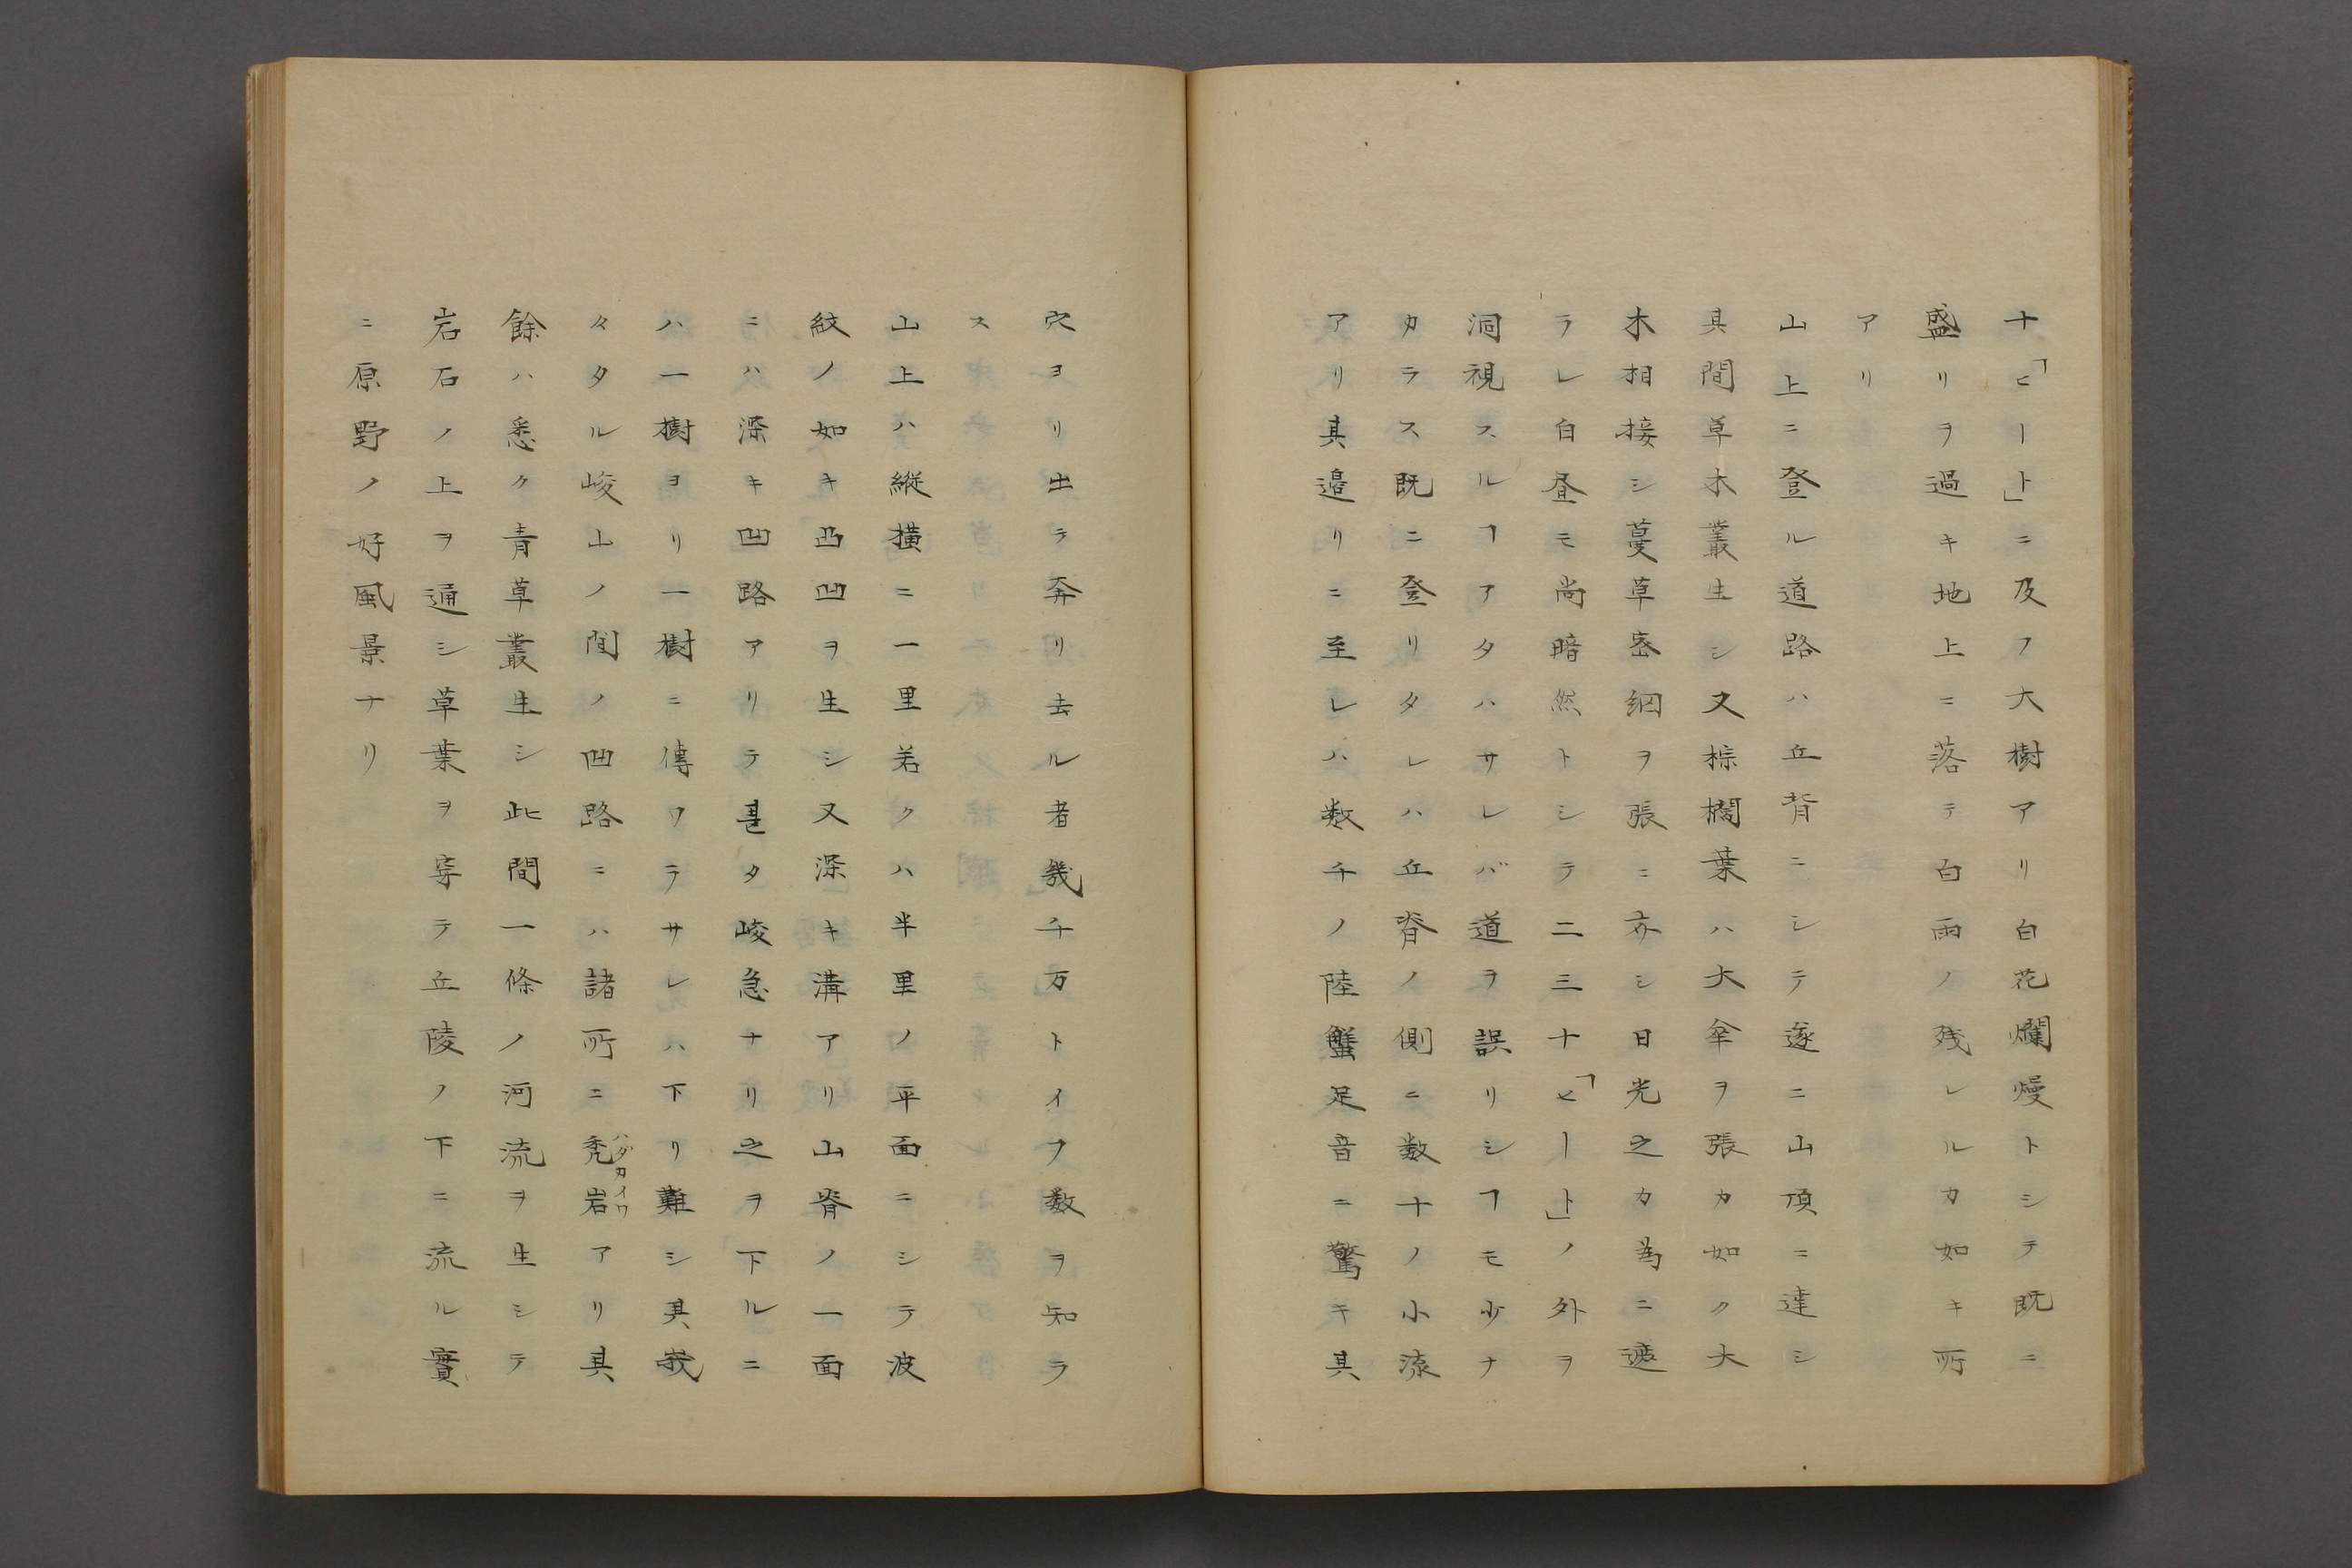 十「ヒート」ニ及フ大樹アリ白花爛熳トシテ既ニ
盛リヲ過キ地上ニ落テ白雨ノ残レルカ如キ所
アリ
山上ニ登ル道路ハ丘背ニシテ遂ニ山頂ニ達シ
其間草木叢生シ又棕櫚葉ハ大傘ヲ張カ如ク大
木相接シ蔓草密網ヲ張ニ亦シ日光之カ為ニ遮
ラレ白昼モ尚暗然トシテ二三十「ヒート」ノ外ヲ
洞視スルヿアタハサレバ道ヲ誤リシヿモ少ナ
カラス既ニ登リタレハ丘脊ノ側ニ数十ノ小流
アリ其邉リニ至レハ数千ノ陸蟹足音ニ驚キ其
穴ヨリ出ラ奔リ去ル者幾千万トイフ数ヲ知ラ
ス
山上ハ縦横ニ一里若クハ半里ノ平面ニシテ波
紋ノ如キ凸凹ヲ生シ又深キ溝アリ山脊ノ一面
ニハ深キ凹路アリテ甚タ峻急ナリ之ヲ下ルニ
ハ一樹ヨリ一樹ニ傳フラサレハ下リ難シ其峩
々タル峻山ノ間ノ凹路ニハ諸所ニ禿岩ハダカイワアリ其
餘ハ悉ク青草叢生シ此間一條ノ河流ヲ生シテ
岩石ノ上ヲ通シ草葉ヲ穿テ丘陵ノ下ニ流ル實
ニ原野ノ好風景ナリ